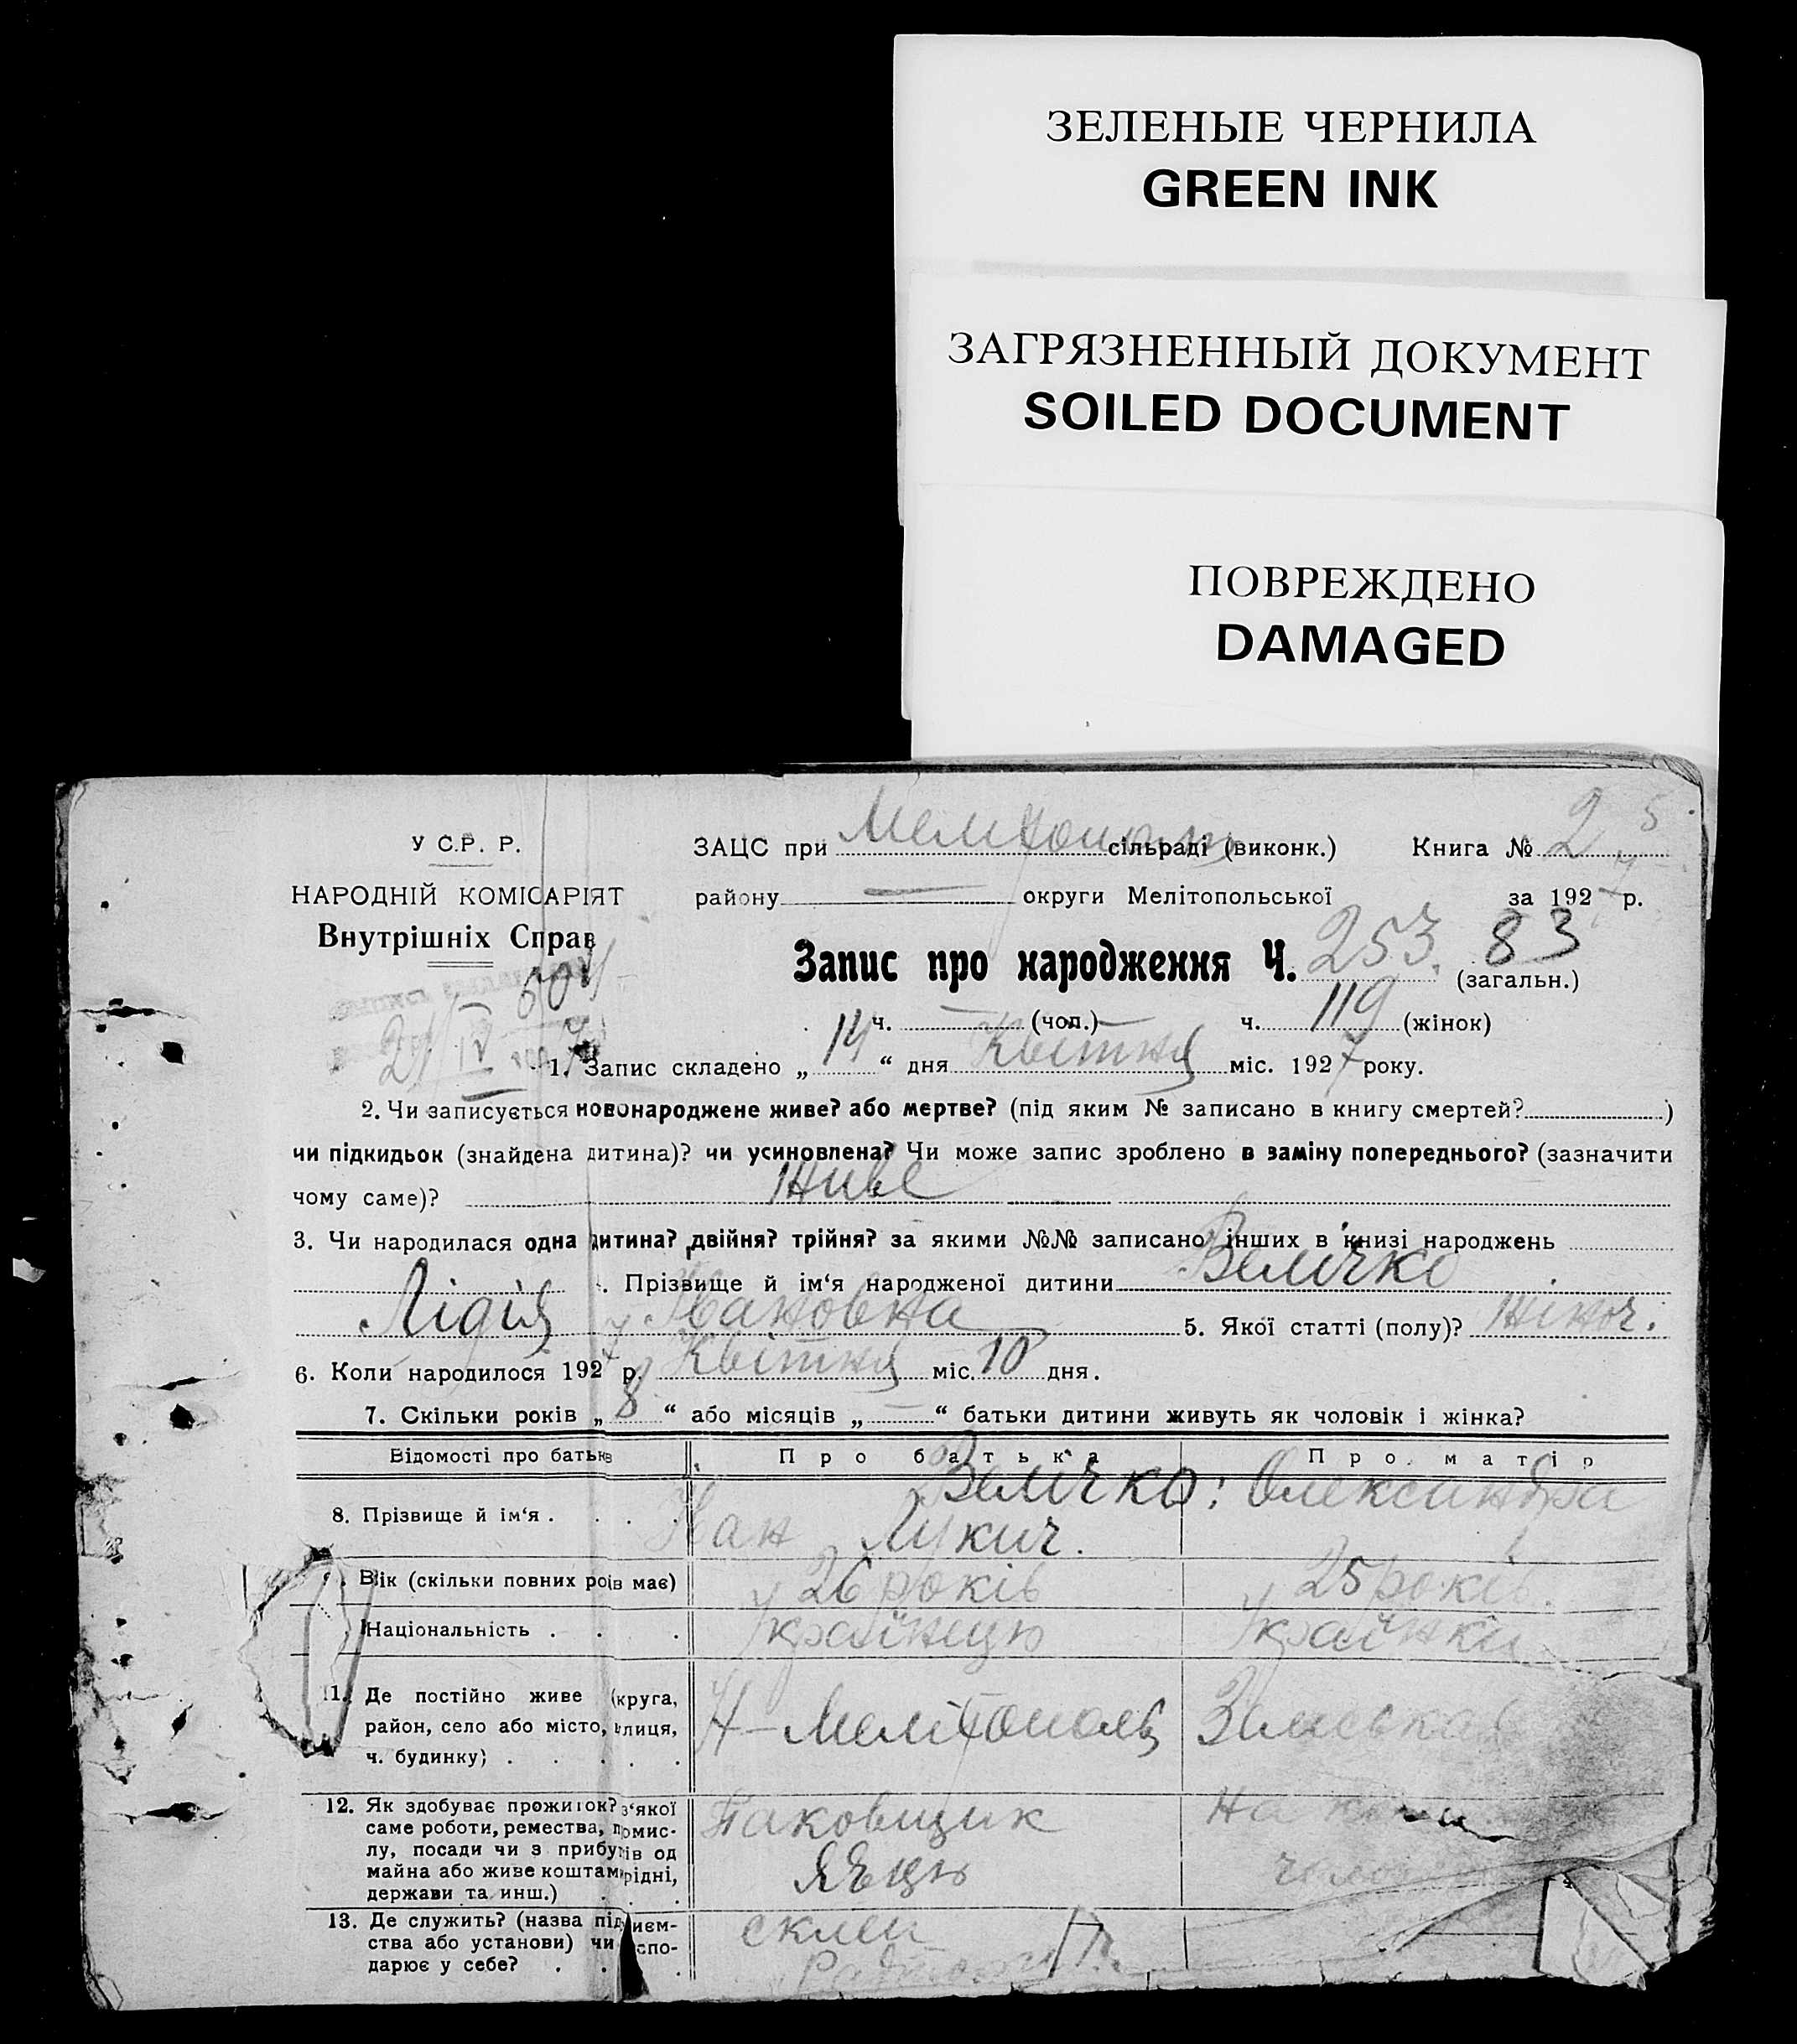 ЗЕЛЕНЫЕ ЧЕРНИЛА
GREEN INK
ЗАГРЯЗНЕННЫЙ ДОКУМЕНТ
SOILED DOCUMENT
ПОВРЕЖДЕНО
DAMAGED
У С.Р. Р.
НАРОДНІЙ КОМІСАРІЯТ
Внутрішніх Справ
ЗАЦС при сільраді (виконк.) Книга № 2 5
району — округи Мелітопольської за 1927 р.
Запис про народження Ч. 253. 83 (загальн.)
ч. — (чол.) ч. 119 (жінок)
1. Запис складено „14“ дня Квітня міс. 1927 року.
2. Чи записується новонароджене живе? або мертве? (під яким № записано в книгу смертей? )
чи підкидьок (знайдена дитина)? чи усиновлена? Чи може запис зроблено в заміну попереднього? (зазначити
чому саме)? живе
3. Чи народилася одна дитина? двійня? трійня? за якими №№ записано інших в книзі народжень
. Прізвище й ім‘я народженої дитини Велічко
Лідія Івановна 5. Якої статті (полу)? жіноч.
6. Коли народилося 1927 р. Квітня міс. 10 дня.
7. Скільки років „8“ або місяців „—“ батьки дитини живуть як чоловік і жінка?
Відомості про батьків Про батька Про матір
8. Прізвище й ім‘я . . . . Велічко: Олександра
Іван Лукич.
. Вік (скільки повних років має) 26 років 25 років.
Національність . . . Українець Українка
11. Де постійно живе (округа,
район, село або місто, вулиця,
ч. будинку) . . . . .
Н-Мелітополь Земська
12. Як здобуває прожиток? з‘якої
саме роботи, ремества, промис-
лу, посади чи з прибутків од
майна або живе коштами рідні,
держави та инш.) . . .
Паковщик
Яєць
На
13. Де служить? (назва підприєм-
ства або установи) чи госпо-
дарює у себе? . . .
склеп